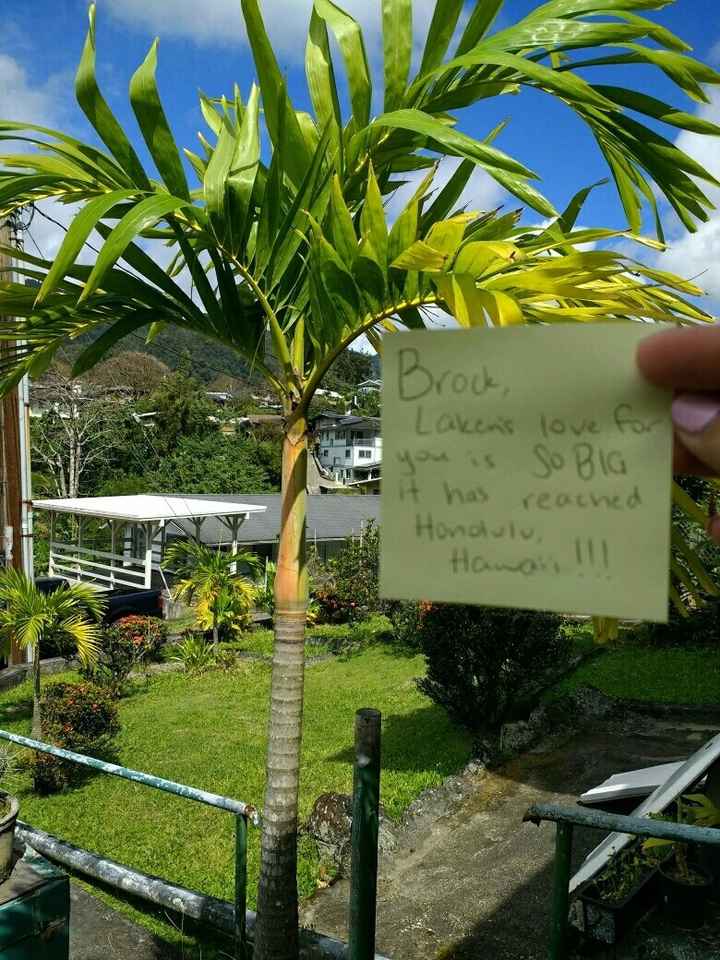 Brock,
Laken's love for
you is So BIG
it has reached
Honolulu,
Hawaii!!!